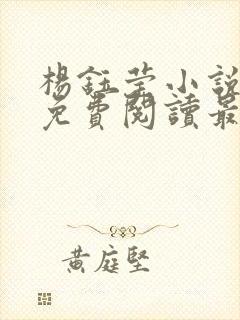 楊鈺瑩小說
免費閱讀最
黃庭堅